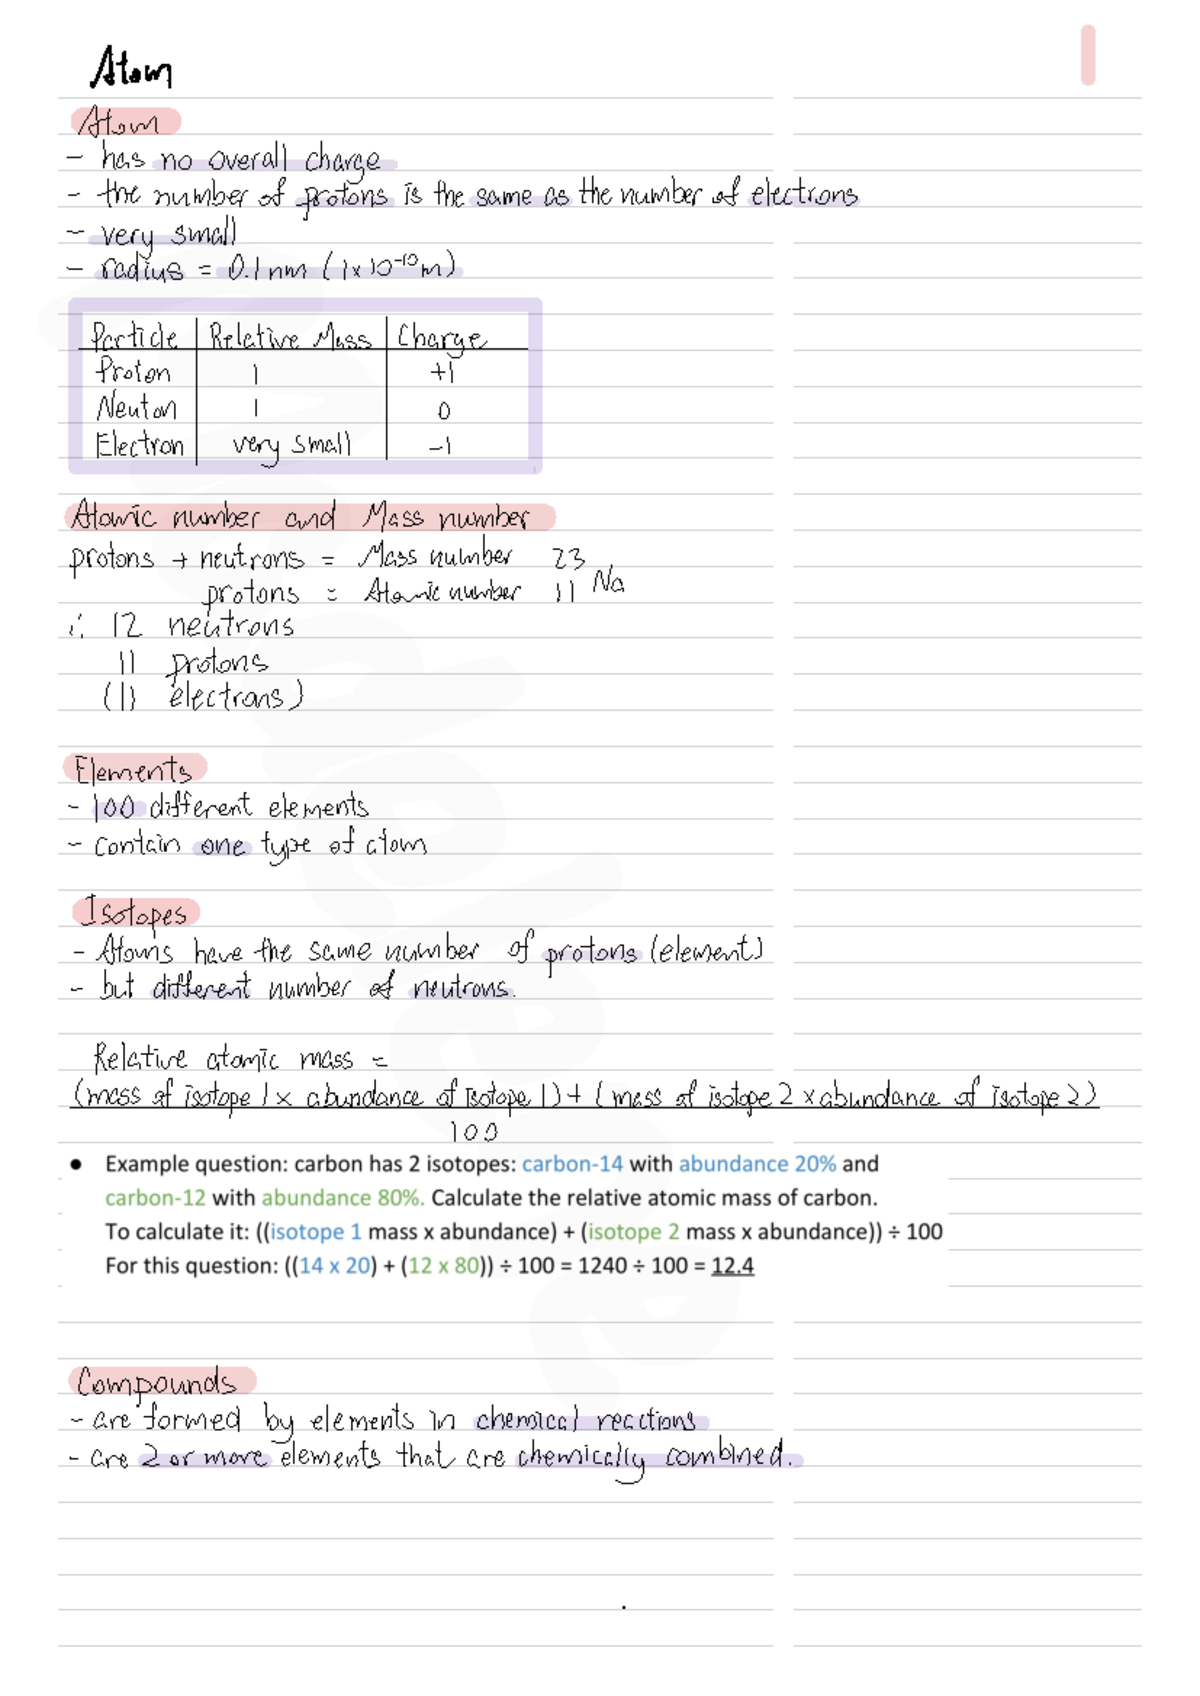 Atom
Atom
- has no overall charge
- the number of protons is the same as the number of electrons
- very small
- radius = 0.1nm (1x10⁻¹⁰m)
Particle Relative Mass Charge
Proton 1 +1
Neuton 1 0
Electron very small -1
Atomic number and Mass number
protons + neutrons = Mass number 23
protons = Atomic number 11 Na
∴ 12 neutrons
11 protons
(11 electrons)
Elements
- 100 different elements
- contain one type of atom
Isotopes
- Atoms have the same number of protons (element)
- but different number of neutrons.
Relative atomic mass =
(mass of isotope 1 x abundance of isotope 1) + (mass of isotope 2 x abundance of isotope 2)
100
● Example question: carbon has 2 isotopes: carbon-14 with abundance 20% and
carbon-12 with abundance 80%. Calculate the relative atomic mass of carbon.
To calculate it: ((isotope 1 mass x abundance) + (isotope 2 mass x abundance)) ÷ 100
For this question: ((14 x 20) + (12 x 80)) ÷ 100 = 1240 ÷ 100 = 12.4
Compounds
- are formed by elements in chemical reactions
- are 2 or more elements that are chemically combined.